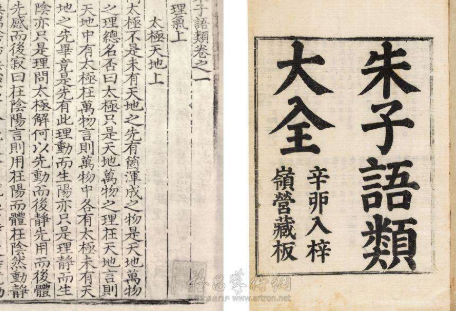 朱子語類
大全
辛卯入梓
嶺營藏板
子語類卷之一
理氣上
太極天地上
太極不是未有天地之先有箇渾成之物是天地萬物
之理總名否曰太極只是天地萬物之理在天地言則
天地中有太極在萬物言則萬物中各有太極未有天
地之先畢竟是先有此理動而生陽亦只是理靜而生
陰亦只是理問太極解何以先動而後靜先用而後體
先感而後寂曰在陰陽言則用在陽而體在陰然動靜